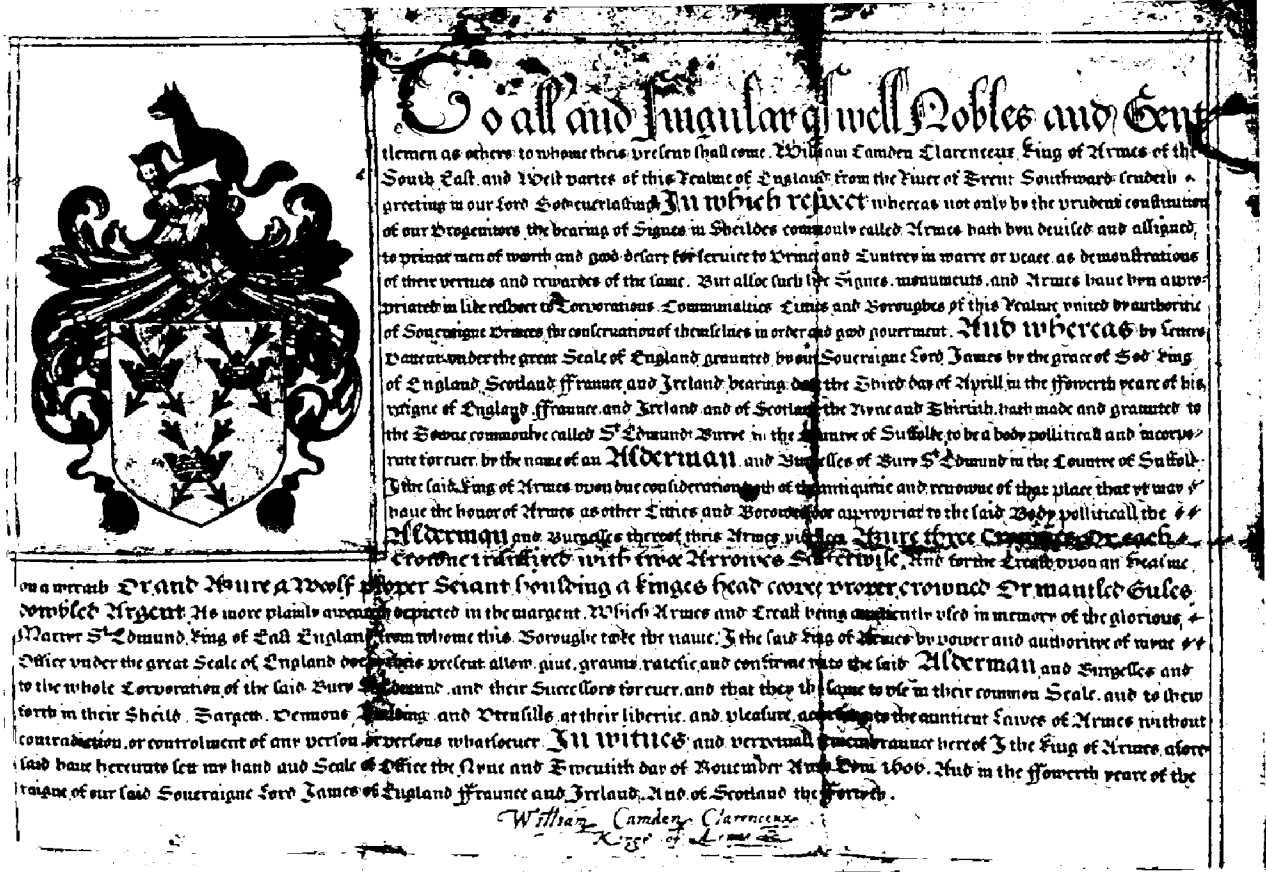 To all and Singular aswell Nobles and Gent
tlemen as others to whome theis present shall come. William Camden Clarenceux King of Armes of the
South East and West partes of this Realme of England from the River of Trent Southward sendeth
greeting in our Lord God euerlasting In which respect whereas not only by the prudent constitution
of our Progenitors the bearing of Signes in Sheildes commonly called Armes hath byn deuised and assigned
to priuat men of worth and good desart for seruice to Prince and Cuntrey in warre or peace as demonstrations
of their vertues and rewardes of the same. But alsoe such like Signes, monuments, and Armes haue byn appro-
priated in like respect to Corporations Communalties Citties and Boroughes of this Realme vnited by authoritie
of Soueraigne Princes for conseruation of themselues in order and good gouerment. And whereas by Letters
Patent vnder the great Seale of England graunted by our Soueraigne Lord James by the grace of God King
of England Scotland ffraunce and Ireland bearing date the Third day of Aprill in the ffowerth yeare of his
raigne of England ffraunce and Ireland and of Scotland the Nyne and Thirtith, hath made and graunted to
the Towne commonlye called St Edmunds Burye in the Countye of Suffolke to be a body politicall and incorpo-
rate for euer by the name of an Alderman and Burgesses of Bury St Edmund in the Countye of Suffolk
I the said King of Armes vpon due consideration both of the antiquitie and renowne of that place that yt may
haue the honor of Armes as other Citties and Borowes appropriat to the said Body politicall the
Alderman and Burgesses thereof theis Armes Azure three Crownes Or each
Crowne transfixed with twoe Arrowes Salterwise, And for the Creast vpon an healme
on a wreath Or and Azure a Woolf proper Seiant houlding a kinges head coupe proper crowned Or mantled Gules
doubled Argent As more plainly appeareth depicted in the margent. Which Armes and Creast being aunciently vsed in memory of the glorious
Martyr St Edmund, King of East England from whome this Boroughe tooke the name. I the said King of Armes by power and authoritye of myne
Office vnder the great Seale of England doe by theis present allow, giue, graunt, ratefie and confirme vnto the said Alderman and Burgesses and
to the whole Corporation of the said Bury St Edmund and their Successors for euer, and that they the same to vse in their common Seale, and to shew
forth in their Sheild, Targett, Pennons, Building and Vtensills at their libertie and pleasure, according to the auntient Lawes of Armes without
contradiction, or controlment of any person or persons whatsoeuer. In witnes and perpetuall remembraunce hereof I the King of Armes afore
said haue hereunto sett my hand and Seale of Office the Nyne and Twentith day of Nouember Anno Dni 1606. And in the ffowerth yeare of the
raigne of our said Soueraigne Lord James of England ffraunce and Ireland, And of Scotland the fortith.
William Camden Clarenceux
Kinge of Armes